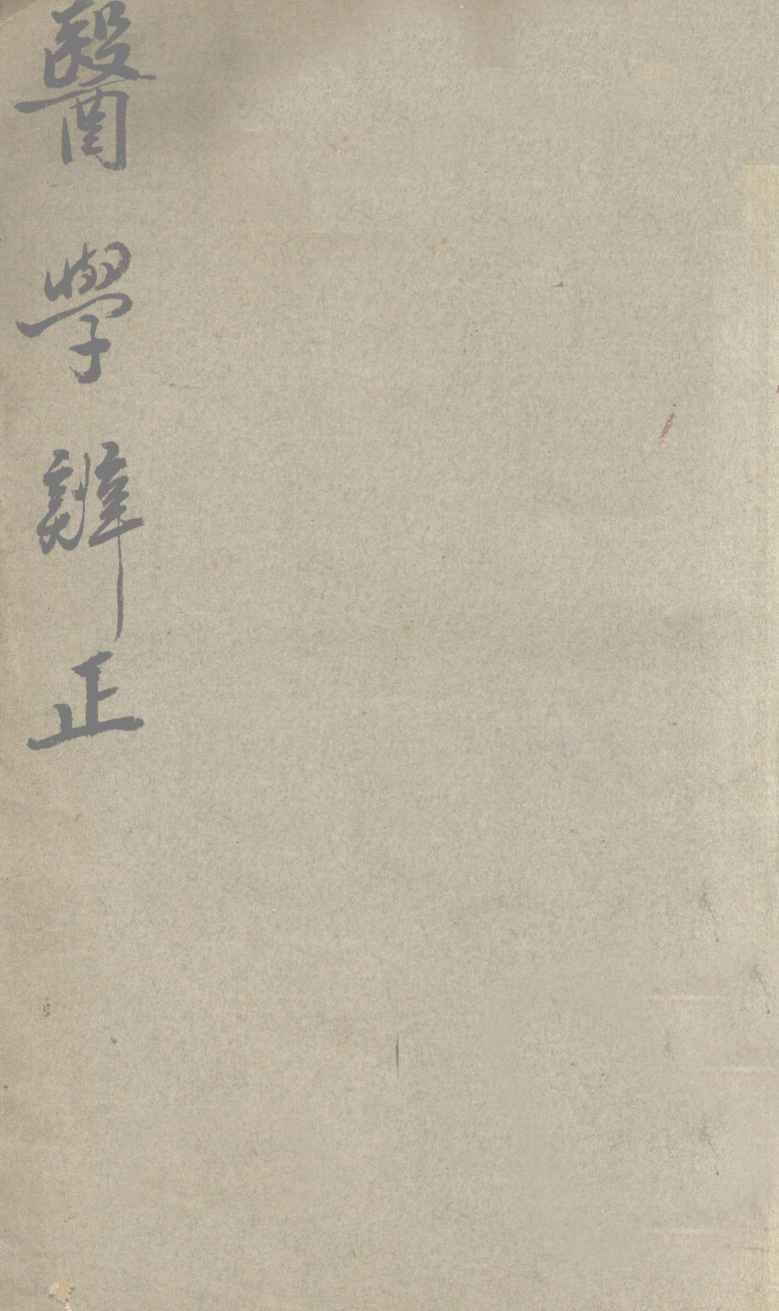 醫學辨正